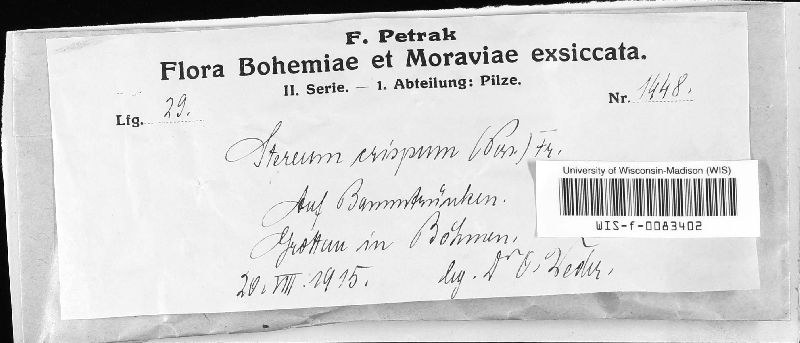 F. Petrak
Flora Bohemiae et Moraviae exsiccata.
II. Serie. — 1. Abteilung: Pilze.
Lfg. 29.
Nr. 1448.
Stereum crispum (Pers.) Fr.
Auf Baumstrünken.
Grottau in Böhmen.
20. VIII. 1915. leg. Dr O.
University of Wisconsin-Madison (WIS)
WIS-f-0083402